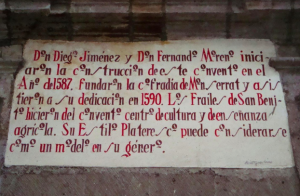 Don Diego Jiménez y Don Fernando Moreno inici-
aron la construccion de este convento en el
Año de 1587, fundaron la cofradia de Monserrat y asis-
tieron a su dedicacion en 1590. Los Frailes de San Beni-
to hicieron del convento centro de cultura y de enseñanza
agrícola. Su Estilo Plateresco puede considerarse
como un modelo en su género.